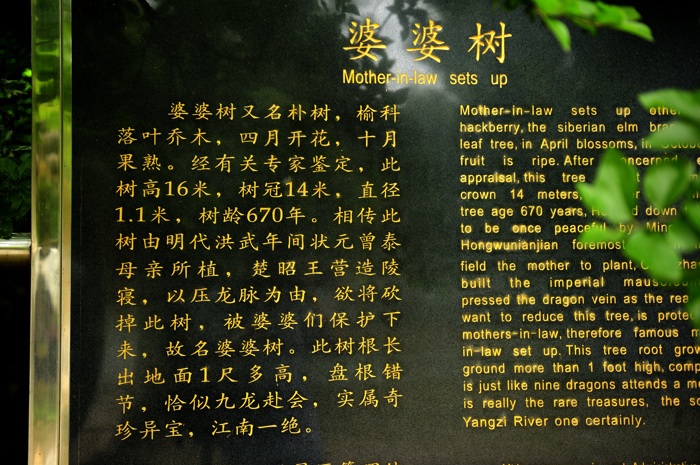 婆婆树
Mother-in-law sets up
婆婆树又名朴树，榆科
落叶乔木，四月开花，十月
果熟。经有关专家鉴定，此
树高16米，树冠14米，直径
1.1米，树龄670年。相传此
树由明代洪武年间状元曾泰
母亲所植，楚昭王营造陵
寝，以压龙脉为由，欲将砍
掉此树，被婆婆们保护下
来，故名婆婆树。此树根长
出地面1尺多高，盘根错
节，恰似九龙赴会，实属奇
珍异宝，江南一绝。
Mother-in-law sets up other
hackberry, the siberian elm
leaf tree, in April blossoms, in October
fruit is ripe. After concerned
appraisal, this tree
crown 14 meters,
tree age 670 years, down
to be once peaceful by Ming
Hongwunianjian foremost
field the mother to plant,
built the imperial
pressed the dragon vein as the
want to reduce this tree, is
mothers-in-law, therefore famous
in-law set up. This tree root
ground more than 1 foot high,
is just like nine dragons attends a
is really the rare treasures, the
Yangzi River one certainly.